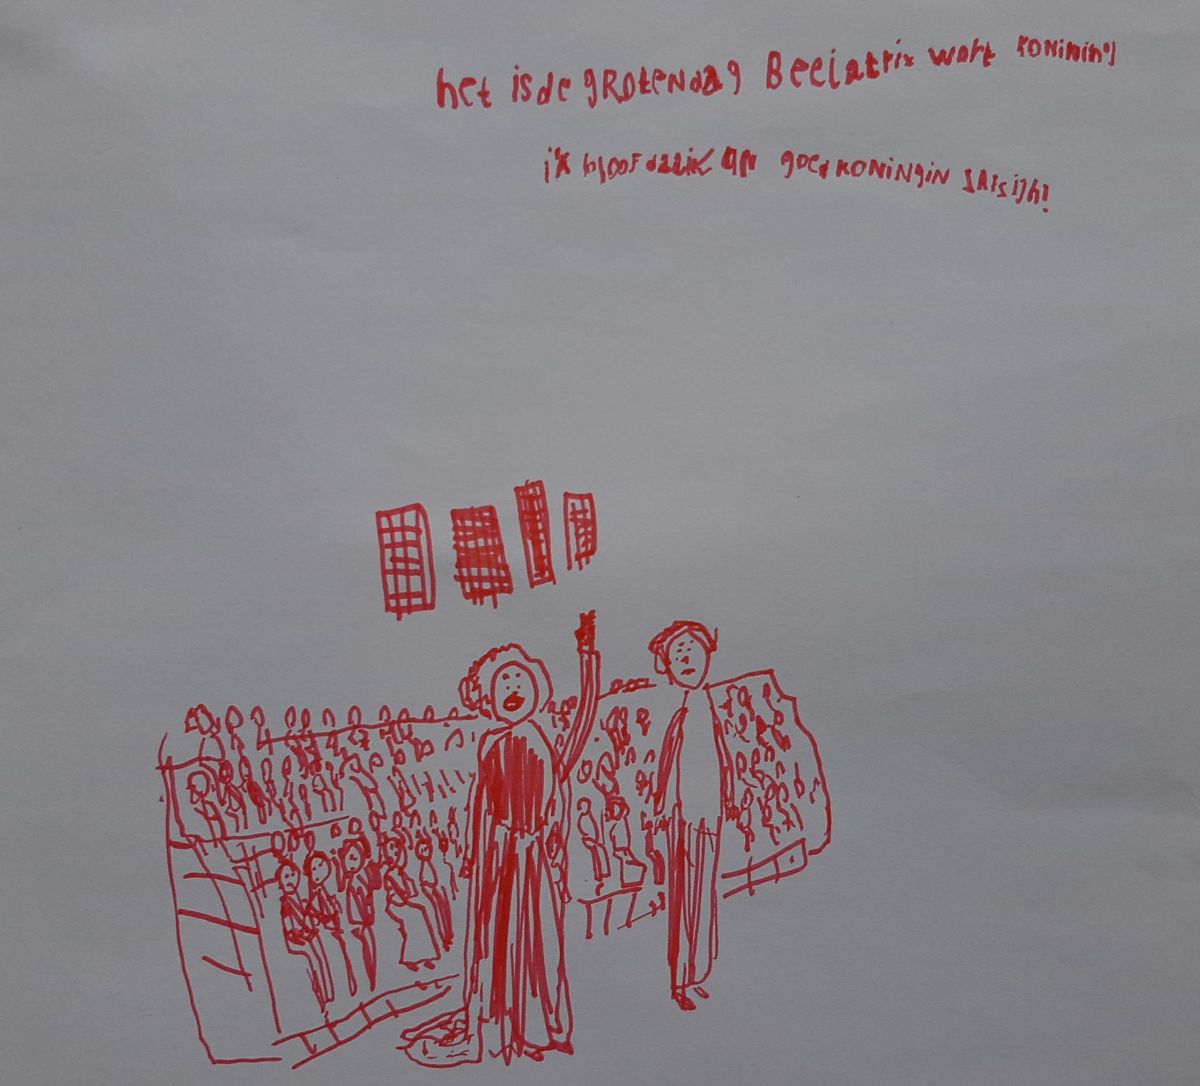 het is de gROteNdag Beeiatrix wort konining
ik bloof dat ik een goed koNiNgin sal sijn!